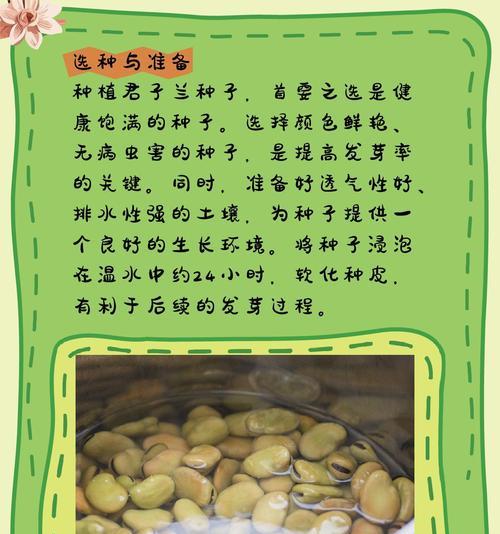 选种与准备
种植君子兰种子，首要之选是健
康饱满的种子。选择颜色鲜艳、
无病虫害的种子，是提高发芽率
的关键。同时，准备好透气性好、
排水性强的土壤，为种子提供一
个良好的生长环境。将种子浸泡
在温水中约24小时，软化种皮，
有利于后续的发芽过程。